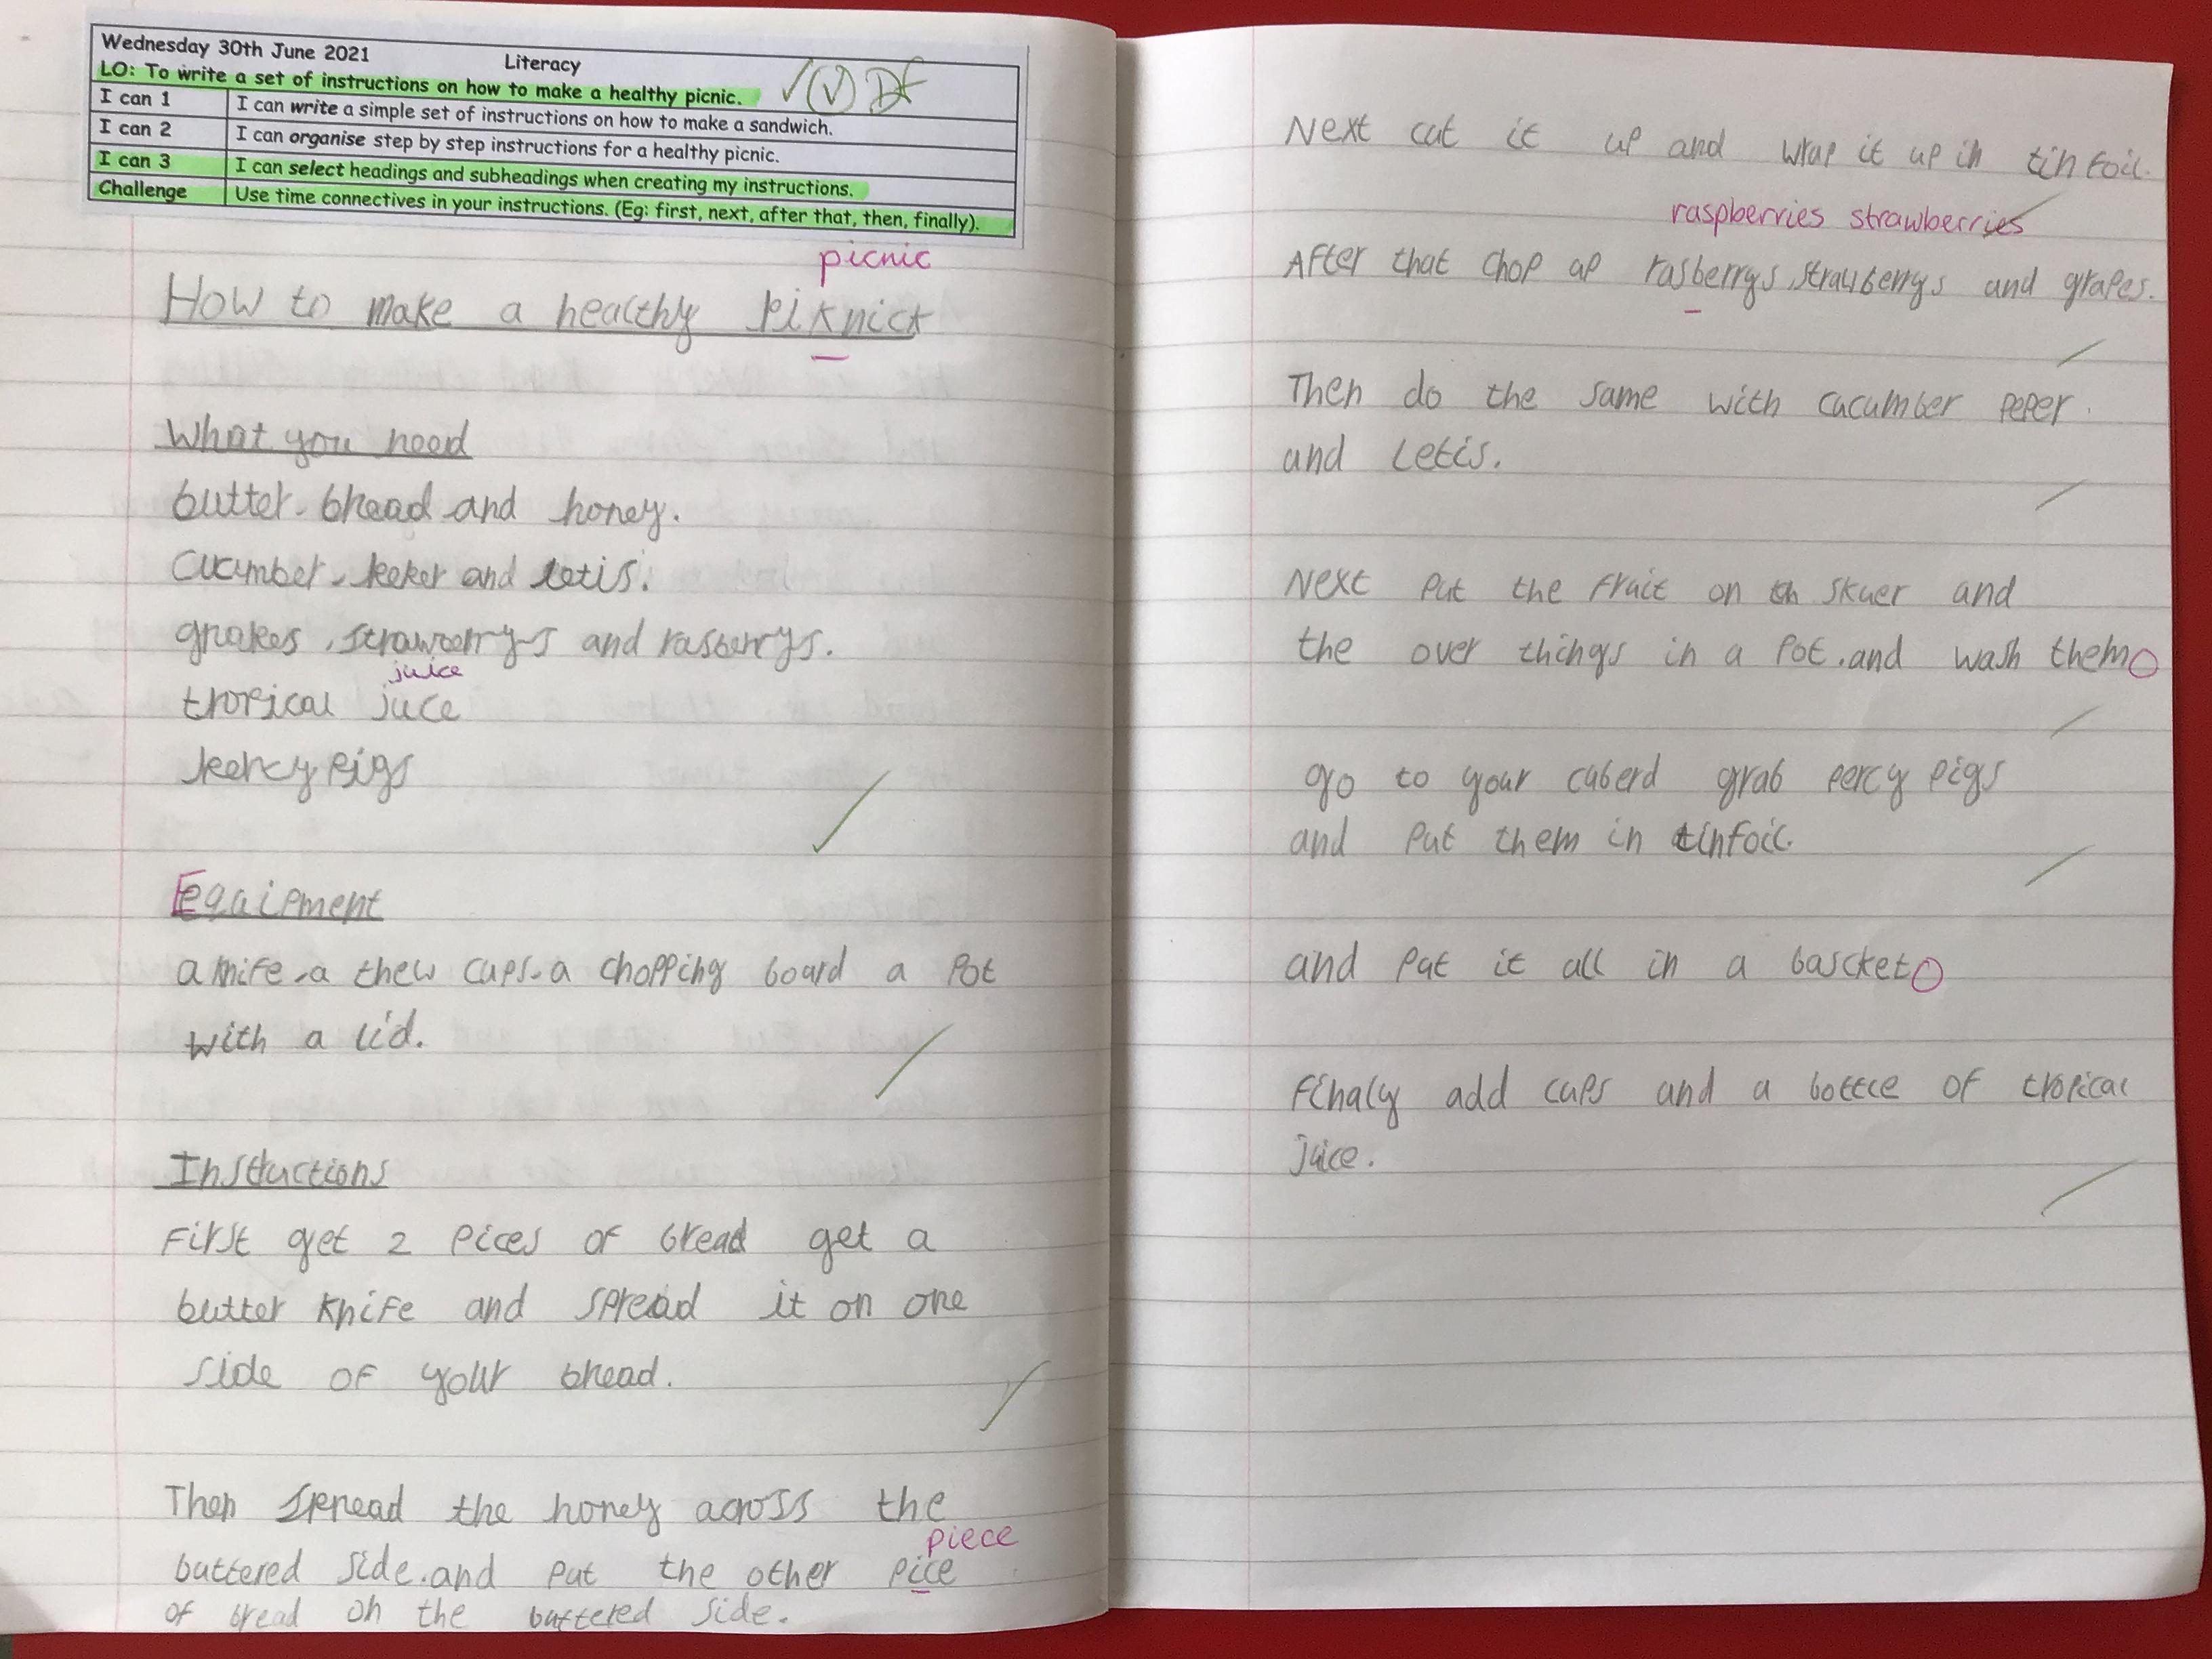 Wednesday 30th June 2021 Literacy
LO: To write a set of instructions on how to make a healthy picnic.
I can 1 I can write a simple set of instructions on how to make a sandwich.
I can 2 I can organise step by step instructions for a healthy picnic.
I can 3 I can select headings and subheadings when creating my instructions.
Challenge Use time connectives in your instructions. (Eg: first, next, after that, then, finally).
picnic
How to make a healthy piknick
What you need
butter. bread and honey.
cucumber. peper and letis.
grapes, strawberrys and rasberrys.
juice
tropical juce
percy pigs
Equipment
a knife. a thew cups. a chopping board a pot
with a lid.
Instuctions
First get 2 pices of bread get a
butter knife and spread it on one
side of your bread.
Then spread the honey across the
piece
buttered side. and put the other pice
of bread on the buttered side.
Next cut it up and wrap it up in tin foil.
raspberries strawberries
After that chop up rasberrys, strawberrys and grapes.
Then do the same with cucumber peper
and letis.
Next put the fruit on th skuer and
the over things in a pot. and wash them
go to your cuberd grab percy pigs
and put them in tinfoil.
and put it all in a bascket
Finaly add cups and a bottle of tropical
juice.